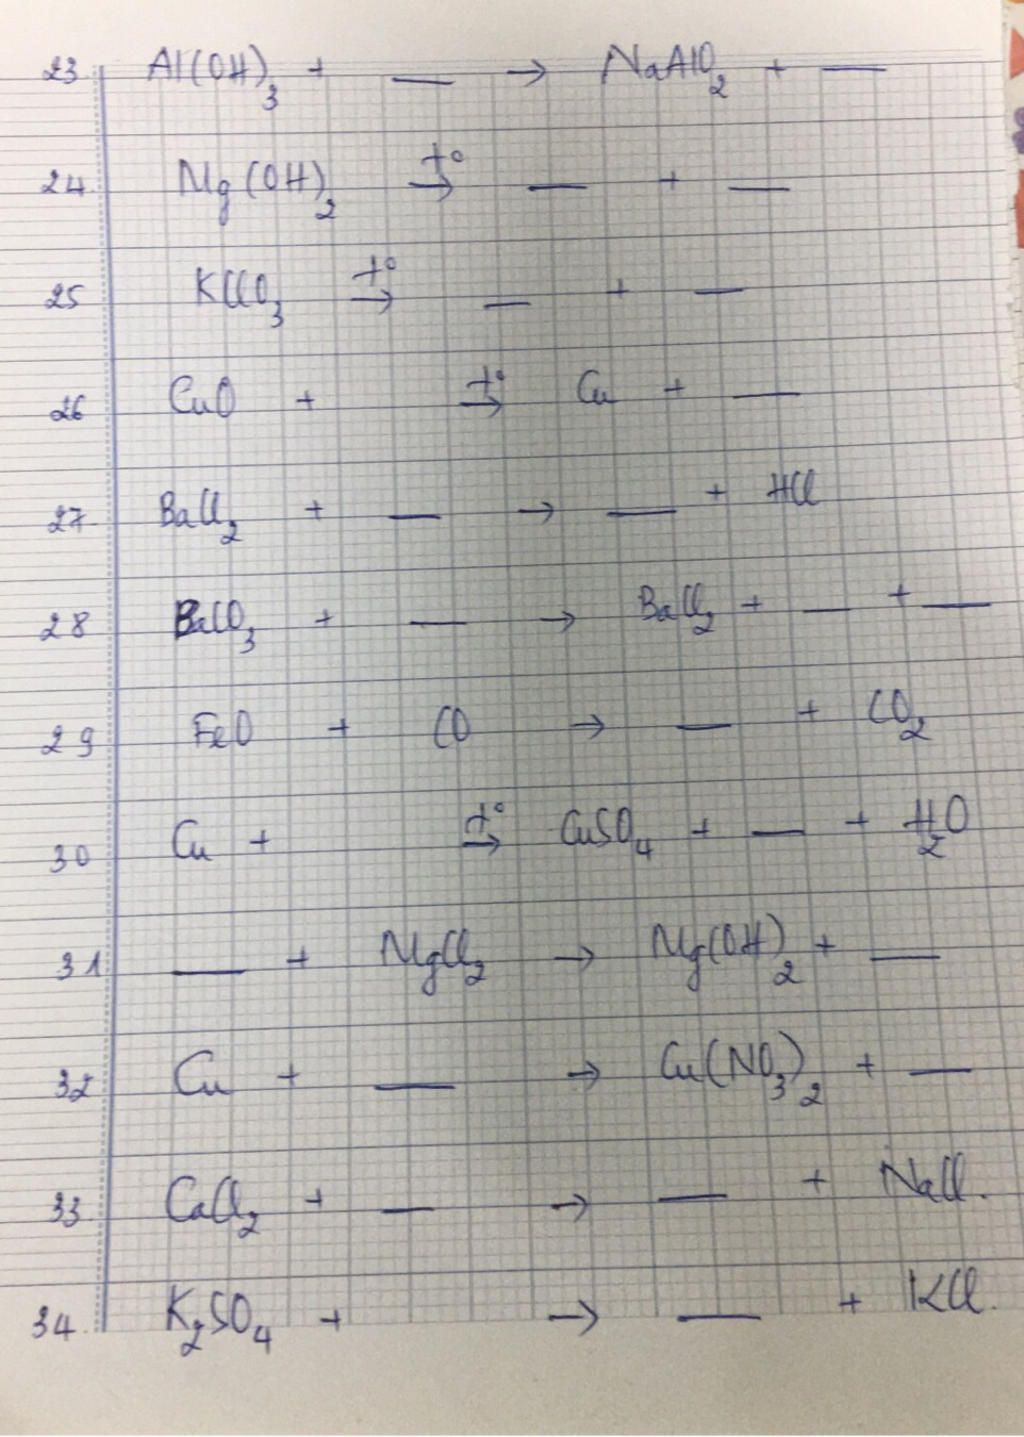 23. Al(OH)₃ + __ → NaAlO₂ + __
24. Mg(OH)₂ t° → __ + __
25 KClO₃ t° → __ + __
26 CuO + t° → Cu + __
27. BaCl₂ + __ → __ + HCl
28 BaCO₃ + __ → BaCl₂ + __ + __
29 FeO + CO → __ + CO₂
30 Cu + t° → CuSO₄ + __ + H₂O
31. __ + MgCl₂ → Mg(OH)₂ + __
32 Cu + __ → Cu(NO₃)₂ + __
33. CaCl₂ + __ → __ + NaCl.
34. K₂SO₄ + → __ + KCl.